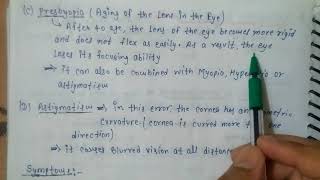 (C) Presbyopia (Aging of the Lens in the Eye)
→ After 40 age, the lens of the eye becomes more rigid
and does not flex as easily. As a result, the eye
loses its focusing ability
→ it can also be combined with Myopia, or
astigmatism
(D) Astigmatism → in this error, the cornea has an
curvature (cornea is curved more one
direction)
→ it causes blurred vision at all distance
Symptoms:-